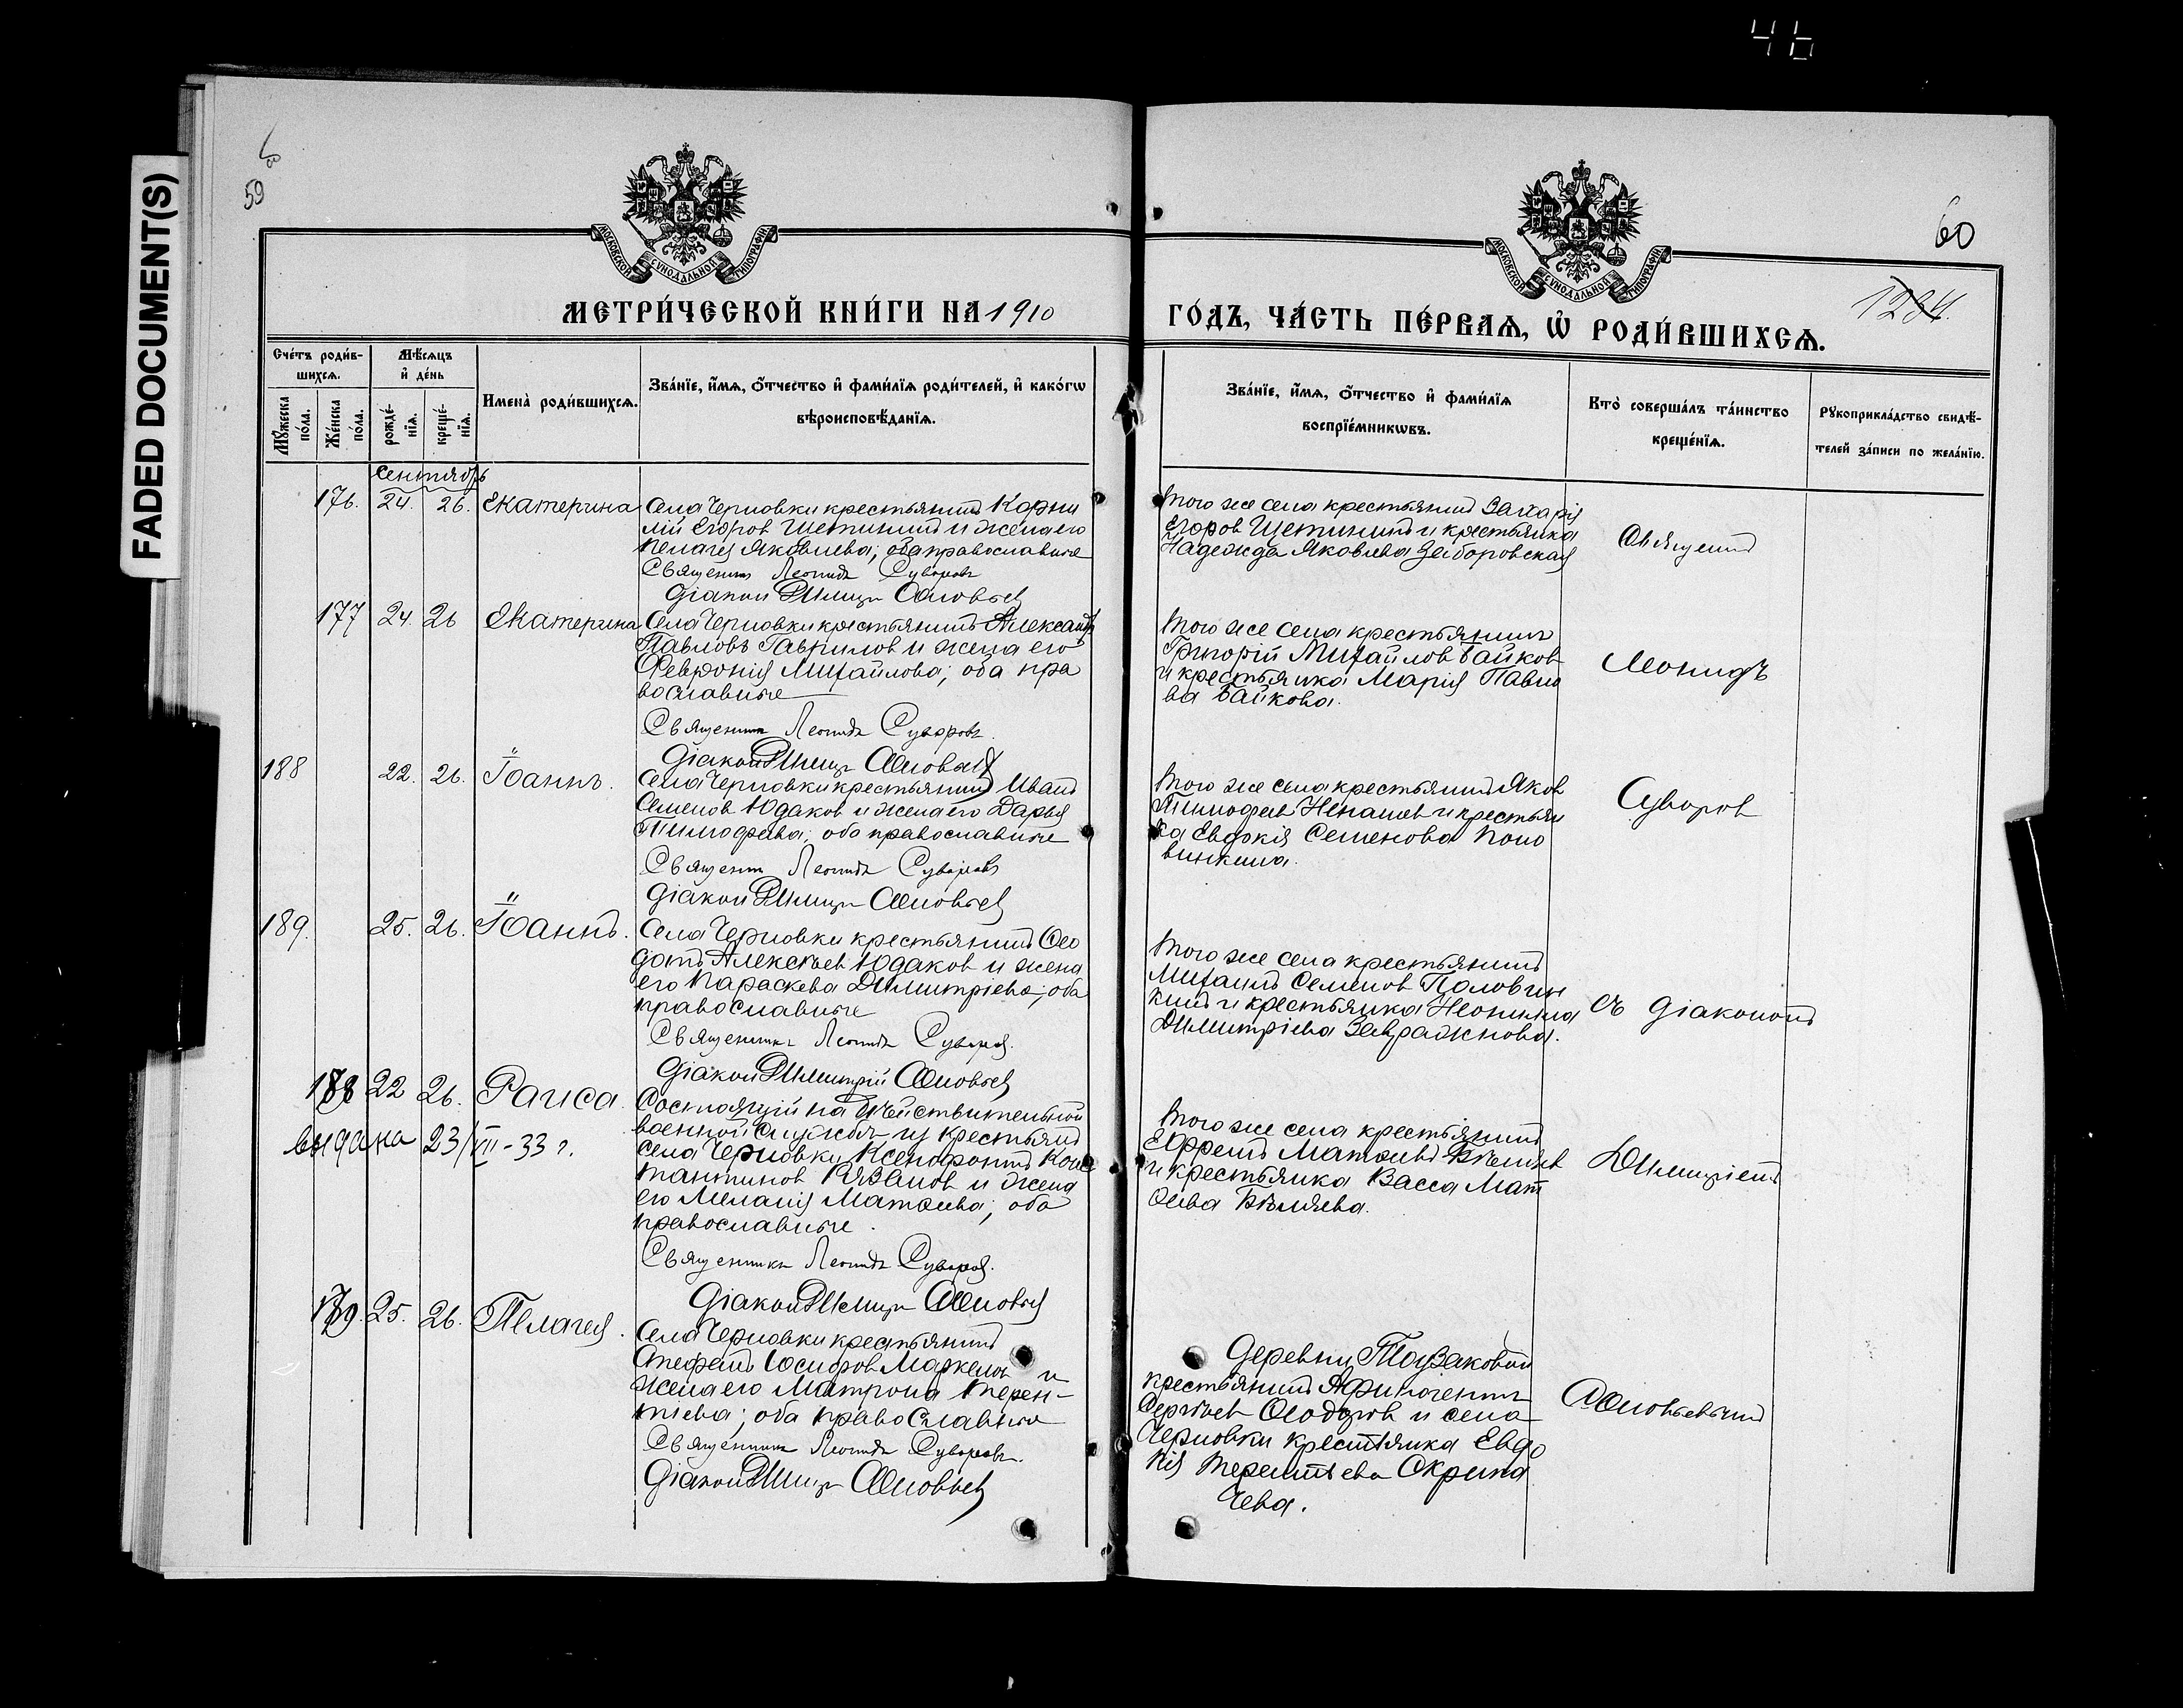 46
FADED DOCUMENT(S)
59
60
1234.
МОСКОВСКОЙ СУНОДАЛЬНОЙ ТИПОГРАФІИ
МОСКОВСКОЙ СУНОДАЛЬНОЙ ТИПОГРАФІИ
МЕТРИ́ЧЕСКОЙ КНИ́ГИ НА 1910
ГО́ДЪ, ЧА́СТЬ ПЕ́РВАѦ, Ѡ҆ РОДИ́ВШИХСѦ.
Сче́тъ роди́в-
шихсѧ.
Мꙋ́жеска по́ла.
Же́нска по́ла.
Мѣ́сѧцъ и҆ де́нь
рожде́-нїѧ.
креще́-нїѧ.
Имена̀ роди́вшихсѧ.
Зва́нїе, и҆́мѧ, ѻ҆́тчество и҆ фами́лїѧ роди́телей, и҆ како́гѡ
вѣроисповѣ́данїѧ.
Зва́нїе, и҆́мѧ, ѻ҆́тчество и҆ фами́лїѧ
воспрїе́мникѡвъ.
Кто̀ соверша́лъ та́инство
креще́нїѧ.
Рꙋкоприкла́дство свидѣ́-
телей за́писи по жела́нїю.
Сентябрь
176. 24. 26. Екатерина
Села Черновки крестьянинъ Корни
лій Егоров Щетининъ и жена его
Пелагея Яковлева; оба православные
Священникъ Леонидъ Суворовъ
Діаконъ Димитрій Соловьев
Того же села крестьянинъ Захарія
Егоров Щетининъ и крестьянка
Надежда Яковлева Заборовская
Священник
177 24. 26 Екатерина
Села Черновки крестьянинъ Александр
Павловъ Гаврилов и жена его
Февронія Михайлова; оба пра
вославные
Священникъ Леонидъ Суворовъ.
Діаконъ Димитрій Соловьев
Того же села крестьянинъ
Григорій Михайлов Байков
и крестьянка Марія Павло
ва Байкова.
Леонидъ
188 22. 26. Іоаннъ.
Села Черновки крестьянинъ Иванъ
Семенов Юдаков и жена его Дарья
Тимофеева; оба православные
Священникъ Леонидъ Суворовъ
Діаконъ Димитрій Соловьев
Того же села крестьянинъ Яков
Тимофеев Ненашев и крестьян
ка Евдокія Семенова Поло
винкина.
Суворов
189. 25. 26. Іоаннъ.
Села Черновки крестьянинъ Ѳео
дотъ Алексѣев Юдаков и жена
его Параскева Димитріева; оба
православные
Священникъ Леонидъ Суворов.
Діаконъ Димитрій Соловьев
Того же села крестьянинъ
Михаилъ Семенов Половин
кинъ и крестьянка Неонилла
Димитріева Завражнова.
съ діакономъ
178 22 26. Раиса.
выдана 23/VII-33 г.
Состоящій на дѣйствительной
военной службѣ из крестьянъ
села Черновки Ксенофонтъ Конс
тантинов Рязанов и жена
его Меланія Матѳеева; оба
православные.
Священникъ Леонидъ Суворов.
Діаконъ Димитрій Соловьев
Того же села крестьянинъ
Ефремъ Матѳеевъ Бѣляев
и крестьянка Васса Мат
ѳеева Бѣляева.
Димитріемъ
179. 25. 26. Пелагея.
Села Черновки крестьянинъ
Стефанъ Іосифов Маркелов и
жена его Матрона Терен-
тіева; оба православные
Священникъ Леонидъ Суворовъ.
Діаконъ Димитрій Соловьев
Деревни Тоузаковой
крестьянинъ Афиногенъ
Сергѣев Ѳеодоров и села
Черновки крестьянка Евдо
кія Терентьева Скрипа
чева.
Соловьевымъ